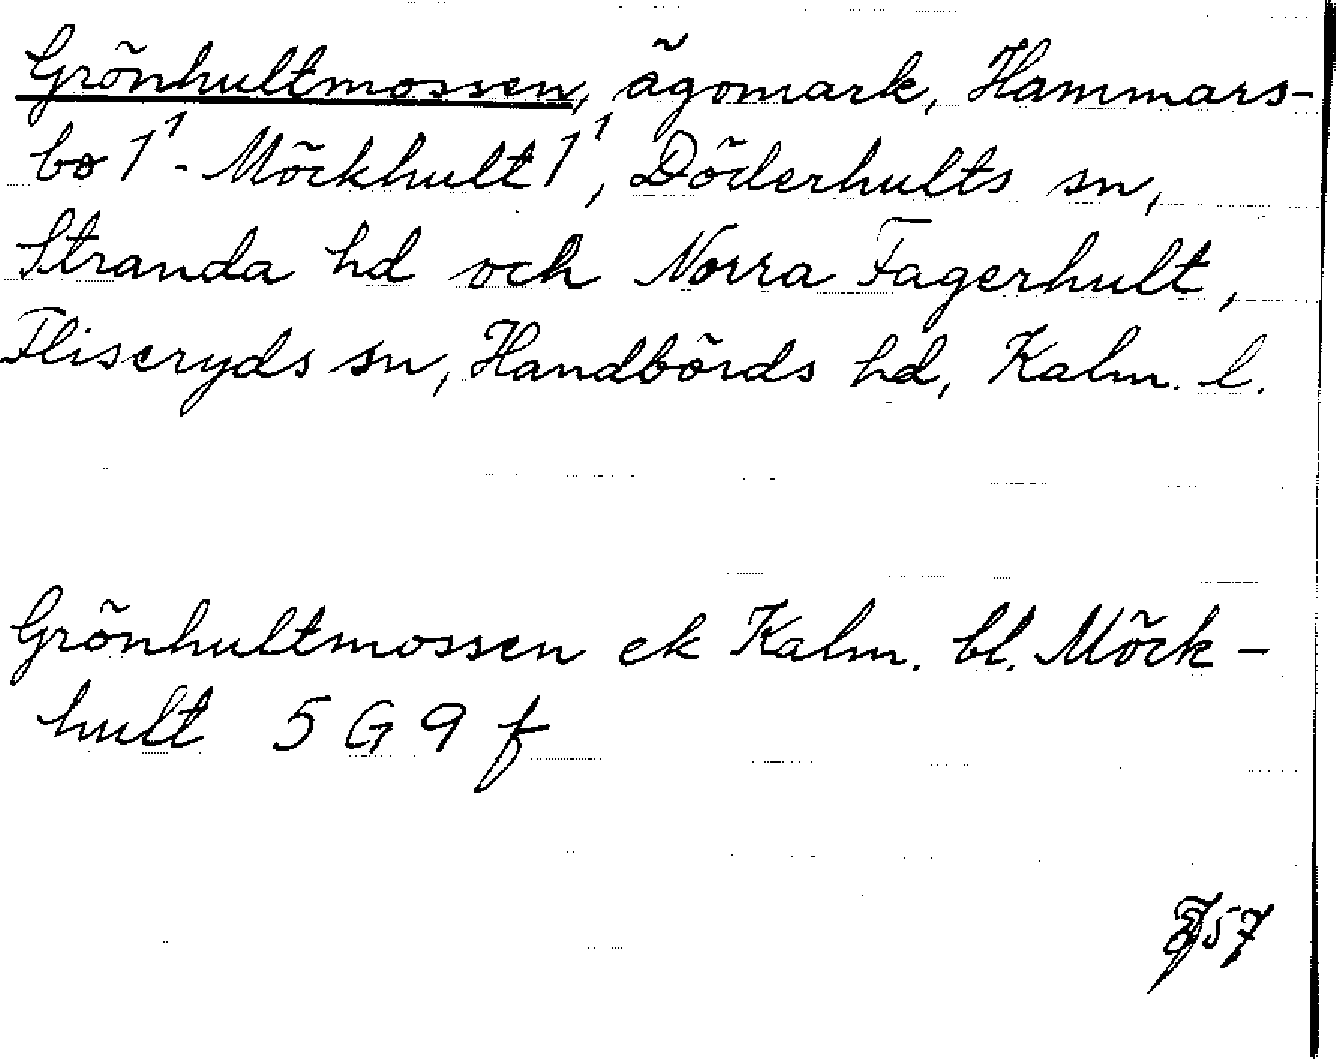 Grönhultmossen, ägomark, Hammars-
bo 1¹ - Möckhult 1¹, Döderhults sn,
Stranda hd och Norra Fagerhult,
Fliseryds sn, Handbörds hd, Kalm. l.
Grönhultmossen ek Kalm. bl. Möck-
hult 5 G 9 f
57